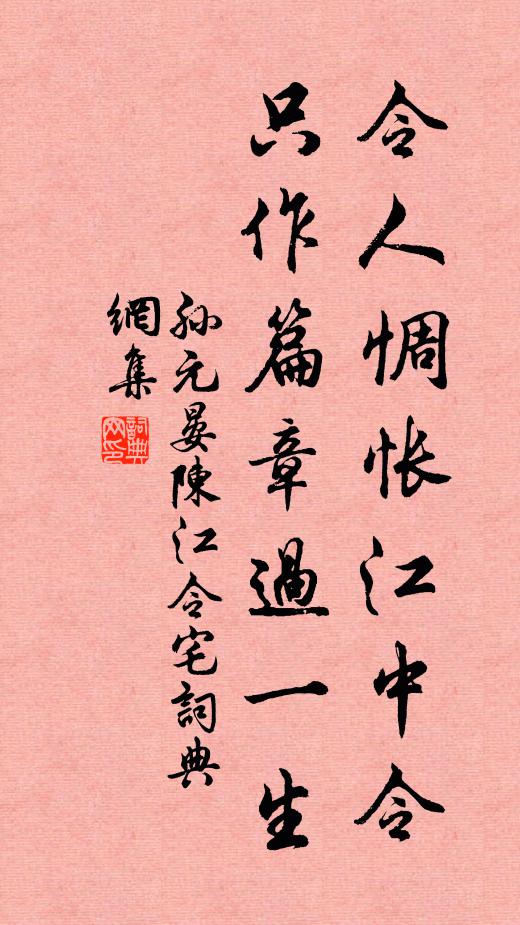 令人惆怅江中令
只作篇章過一生
孙元晏陳江令宅詞典
網集
詞典
网印